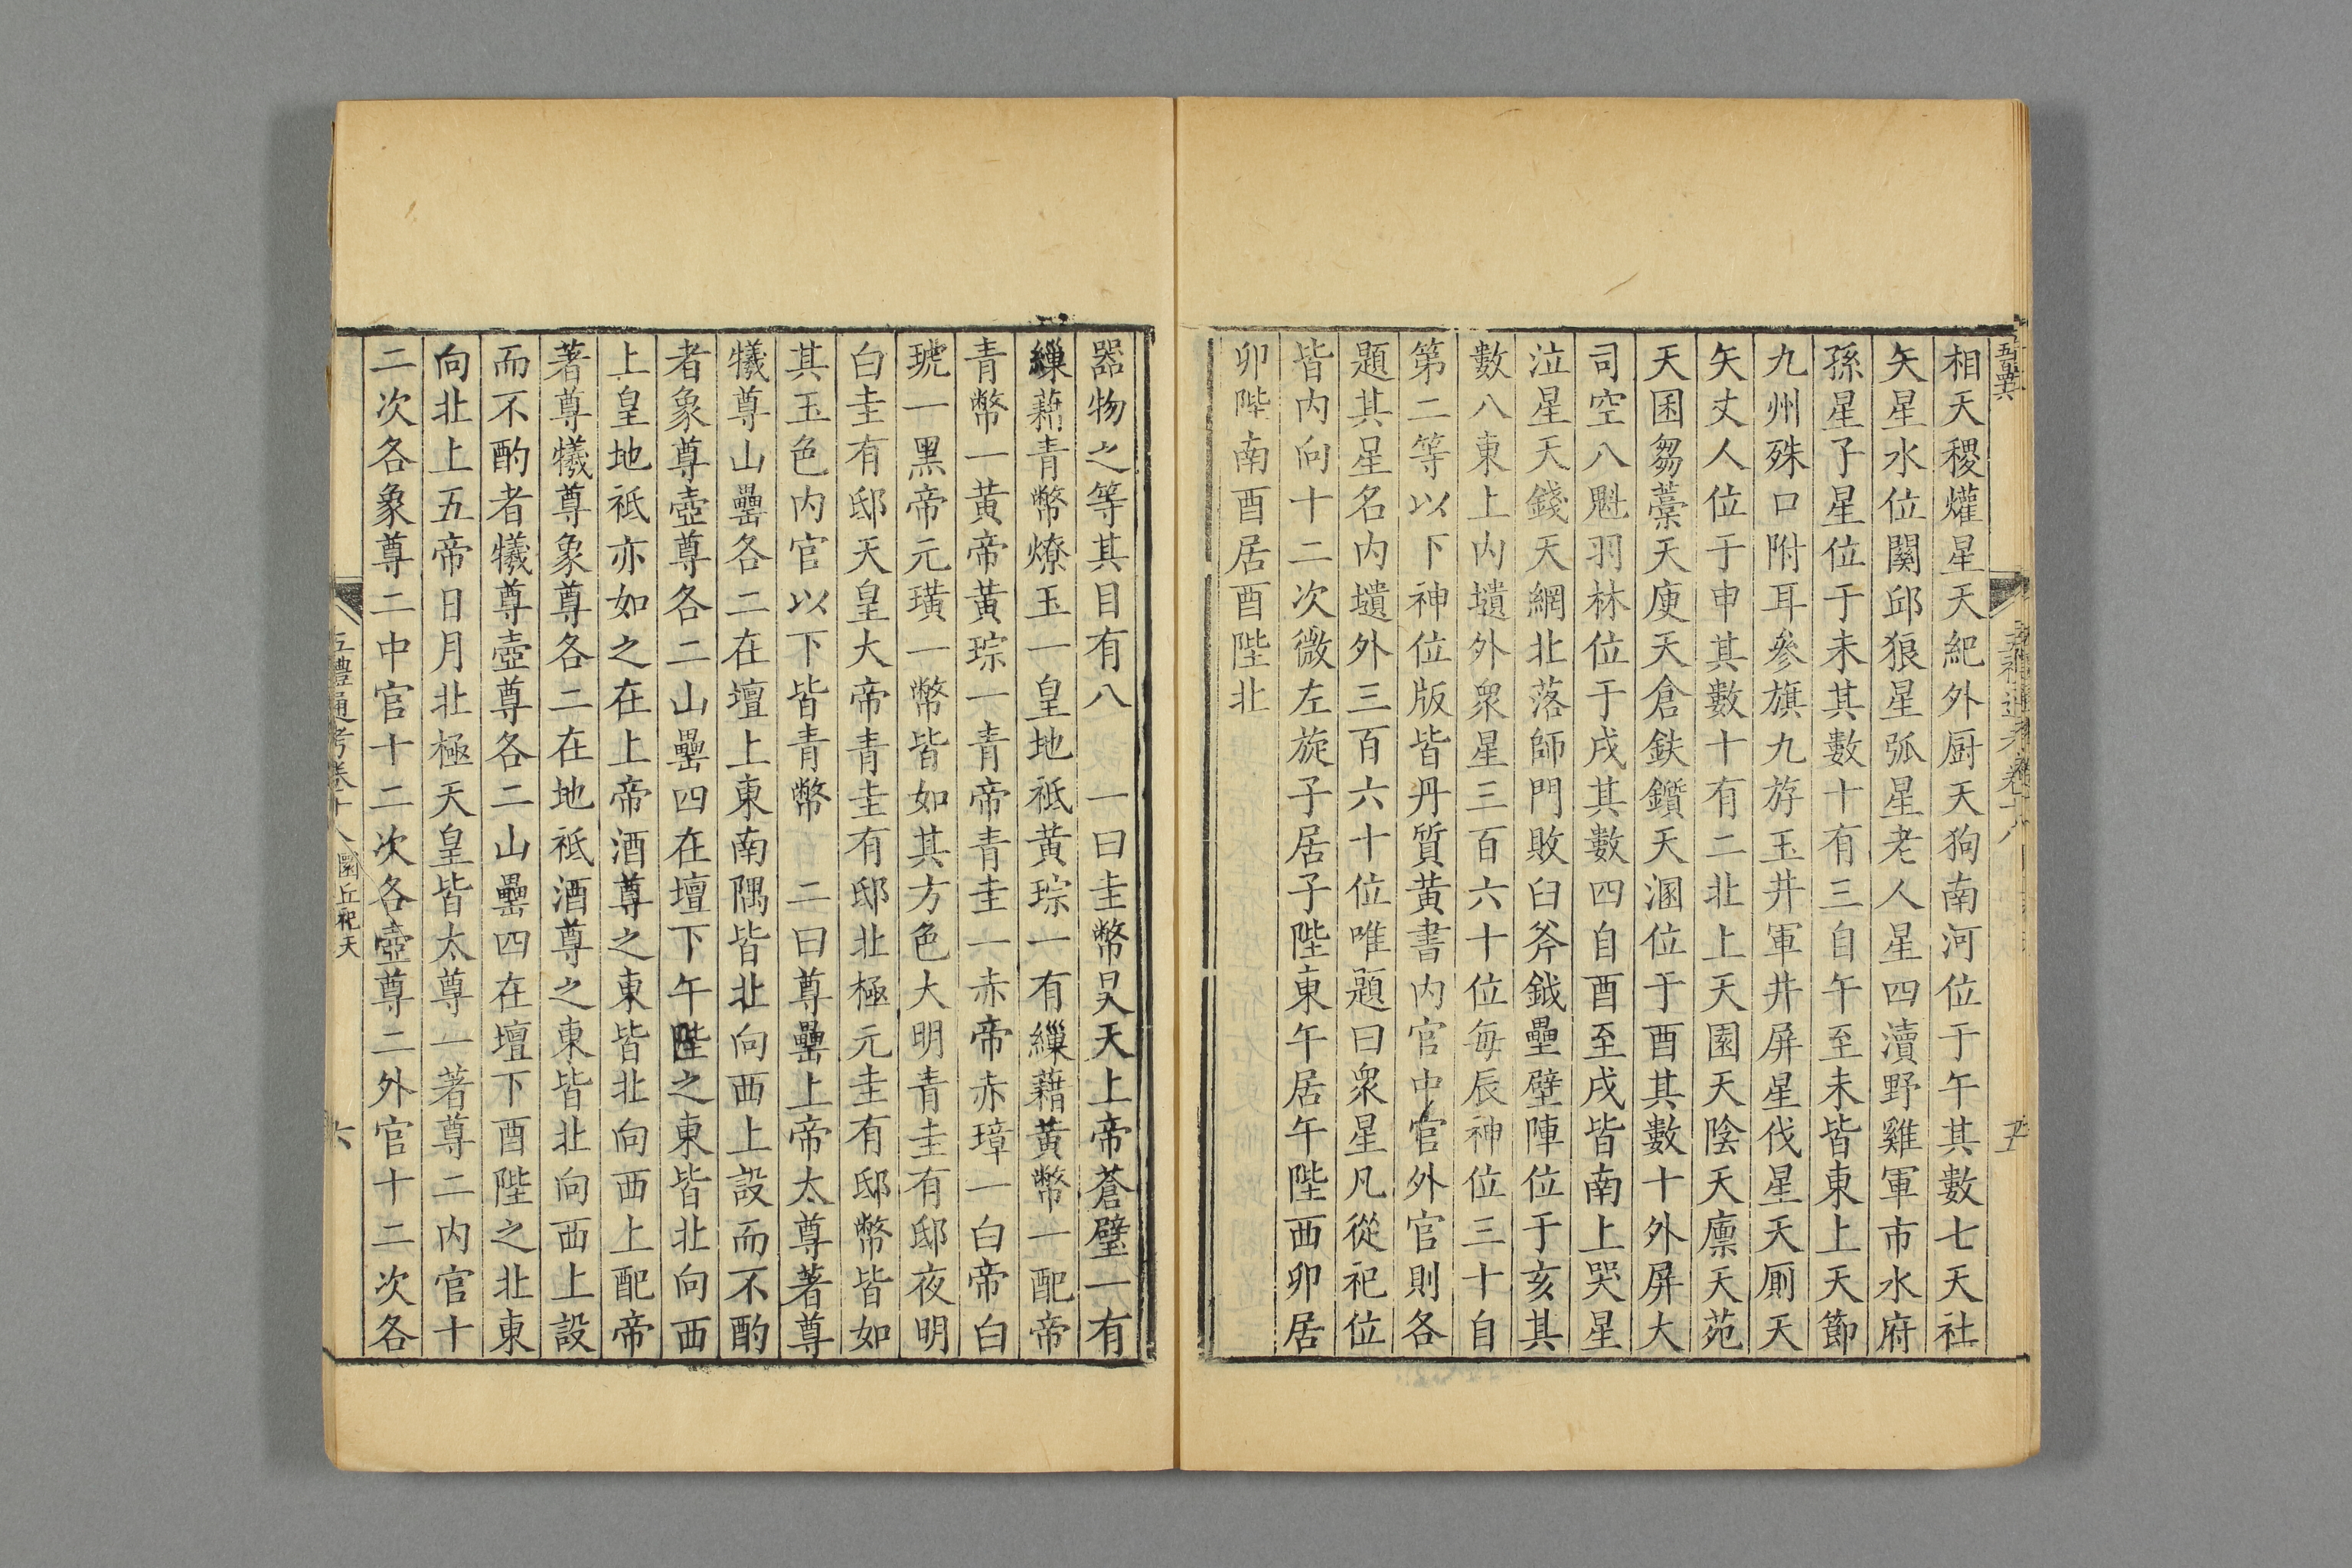 相天稷爟星天紀外厨天狗南河位于午其數七天社
矢星水位闕邱狼星弧星老人星四瀆野雞軍市水府
孫星子星位于未其數十有三自午至未皆東上天節
九州殊口附耳參旗九斿玉井軍井屏星伐星天厠天
矢丈人位于申其數十有二北上天園天陰天廪天苑
天囷芻藁天庾天倉鈇鑕天溷位于酉其數十外屏大
司空八魁羽林位于戌其數四自酉至戌皆南上哭星
泣星天錢天網北落師門敗臼斧鉞壘壁陣位于亥其
數八東上内壝外衆星三百六十位每辰神位三十自
第二等以下神位版皆丹質黃書内官中官外官則各
題其星名内壝外三百六十位唯題曰衆星凡從祀位
皆内向十二次微左旋子居子陛東午居午陛西卯居
卯陛南酉居酉陛北
器物之等其目有八 一曰圭幣昊天上帝蒼璧一有
繅藉青幣燎玉一皇地祇黃琮一有繅藉黃幣一配帝
青幣一黃帝黃琮一青帝青圭一赤帝赤璋一白帝白
琥一黑帝元璜一幣皆如其方色大明青圭有邸夜明
白圭有邸天皇大帝青圭有邸北極元圭有邸幣皆如
其玉色内官以下皆青幣 二曰尊罍上帝太尊著尊
犧尊山罍各二在壇上東南隅皆北向西上設而不酌
者象尊壺尊各二山罍四在壇下午陛之東皆北向西
上皇地祇亦如之在上帝酒尊之東皆北向西上配帝
著尊犧尊象尊各二在地祇酒尊之東皆北向西上設
而不酌者犧尊壺尊各二山罍四在壇下酉陛之北東
向北上五帝日月北極天皇皆太尊一著尊二内官十
二次各象尊二中官十二次各壺尊二外官十二次各
五禮通考卷十八 圜丘祀天
六